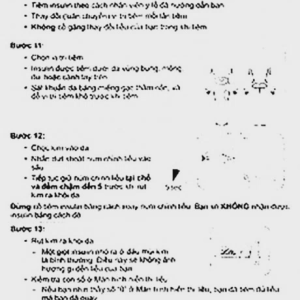 • Tiêm insulin theo cách nhân viên y tế đã hướng dẫn bạn
• Thay đổi (luân chuyển) vị trí tiêm mỗi lần tiêm
• Không cố gắng thay đổi liều của bạn trong khi tiêm
Bước 11:
• Chọn vị trí tiêm
• Insulin được tiêm dưới da vùng bụng, mông,
đùi hoặc cánh tay trên
• Sát khuẩn da bằng miếng gạc thấm cồn, và
để vị trí tiêm khô trước khi tiêm
Bước 12:
• Chọc kim vào da
• Nhấn dứt khoát núm chỉnh liều vào
sâu
• Tiếp tục giữ núm chỉnh liều tại chỗ
và đếm chậm đến 5 trước khi rút
kim ra khỏi da
5 sec
Đừng cố tiêm insulin bằng cách xoay núm chỉnh liều. Bạn sẽ KHÔNG nhận được
insulin bằng cách đó
Bước 13:
• Rút kim ra khỏi da
- Một giọt insulin nhỏ ra ở đầu mũi kim
là bình thường. Điều này sẽ không ảnh
hưởng gì đến liều của bạn
• Kiểm tra con số ở Màn hình hiển thị liều
- Nếu bạn nhìn thấy số "0" ở Màn hình hiển thị liều, bạn đã tiêm đủ liều
mà bạn đã quay